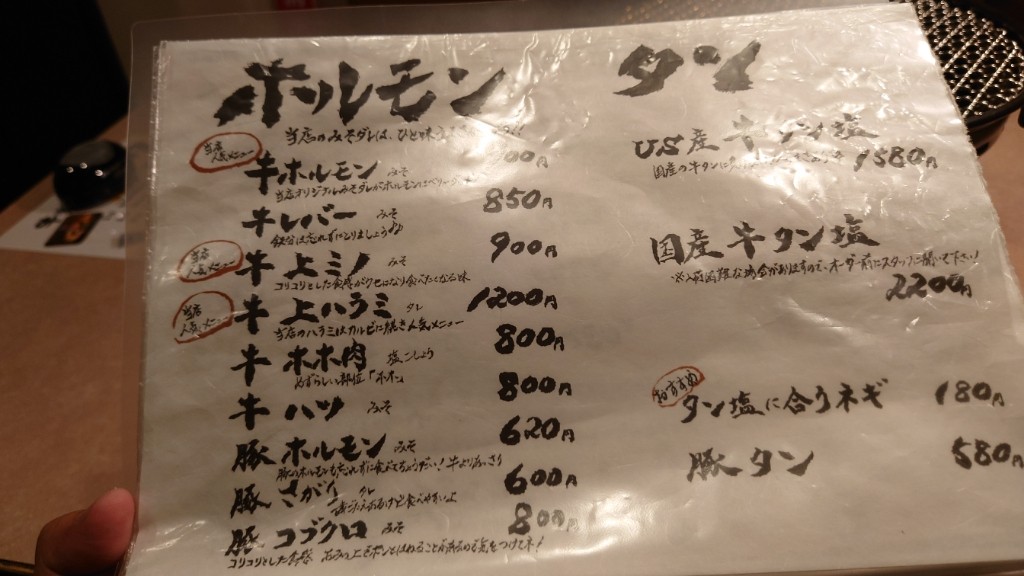 ホルモン
当店のみそダレは、ひと味
当店人気メニュー
牛ホルモン みそ 900円
当店オリジナルみそダレがホルモンに
牛レバー みそ 850円
鉄分は忘れずにとりましょう♪
当店
牛 上ミノ みそ 900円
コリコリとした食感が
当店人気メニュー
牛 上ハラミ タレ 1200円
当店のハラミはカルビに続き人気メニュー
牛 ホホ肉 塩こしょう 800円
めずらしい部位「ホホ」
牛 ハツ みそ 800円
豚 ホルモン みそ 620円
豚のホルモンも忘れずに食べてちょうだい!牛よりあっさり
豚 さがり タレ 600円
食べやすいよ
豚 コブクロ みそ 800円
コリコリとした食感
タン
US産 牛タン塩 1580円
国産の牛タンに
国産 牛タン塩
※入荷困難な場合がありますので、オーダー前にスタッフに聞いて下さい!
2200円
おすすめ
タン塩に合うネギ 180円
豚タン 580円